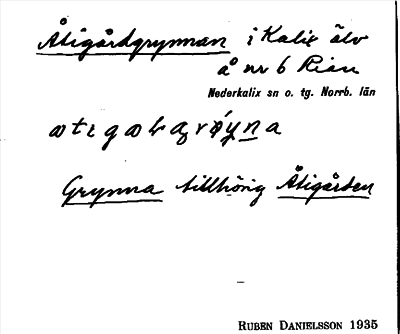 Åtigårdgrynnan i Kalix älv
å nr 6 Rian
Nederkalix sn o. tg. Norrb. län
Grynna tillhörig Åtigården
RUBEN DANIELSSON 1935